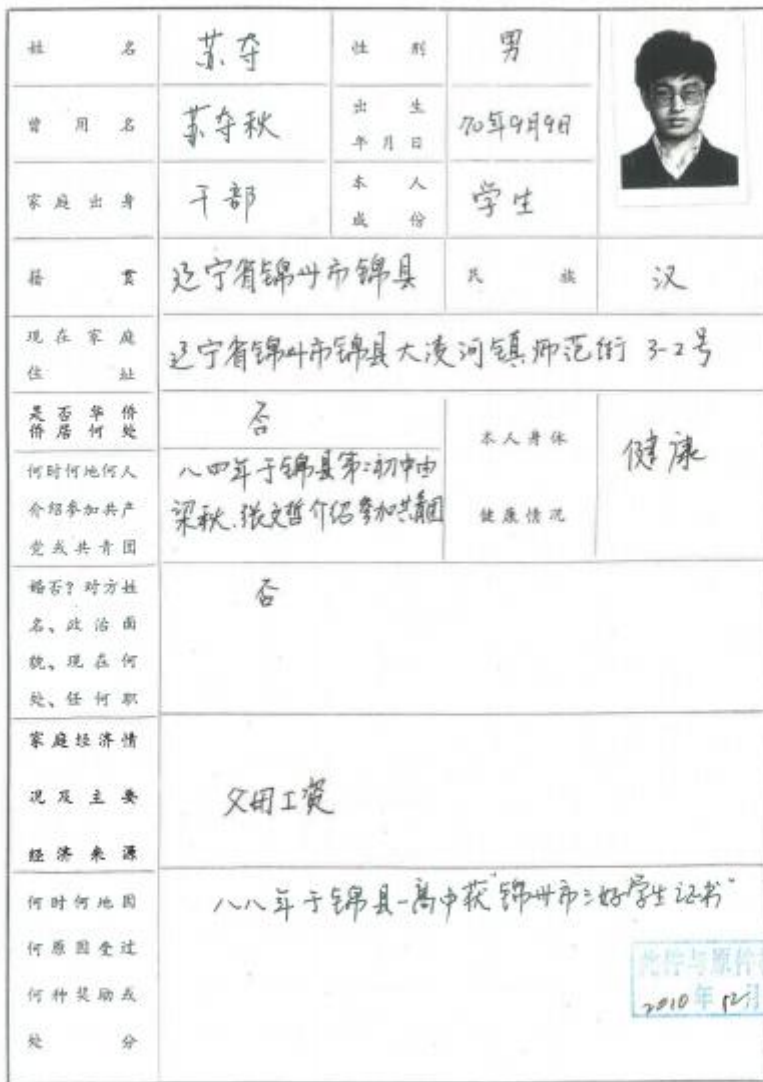 姓名 苏夺 性别 男
曾用名 苏夺秋 出生年月日 70年9月9日
家庭出身 干部 本人成份 学生
籍贯 辽宁省锦州市锦县 民族 汉
现在家庭住址 辽宁省锦州市锦县大凌河镇师范街 3-2号
是否华侨
侨居何处
否
何时何地何人
介绍参加共产
党或共青团
八四年于锦县第二初中由
梁秋、张文哲介绍参加共青团
本人身体
健康情况
健康
婚否?对方姓
名、政治面
貌、现在何
处、任何职
否
家庭经济情
况及主要
经济来源
父母工资
何时何地因
何原因受过
何种奖励或
处分
八八年于锦县一高中获"锦州市三好学生证书"
此件与原件
2010年12月